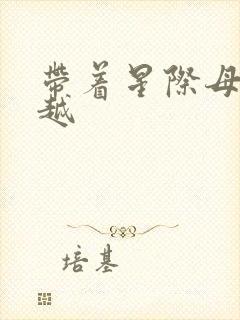 帶着星際母
越
培基